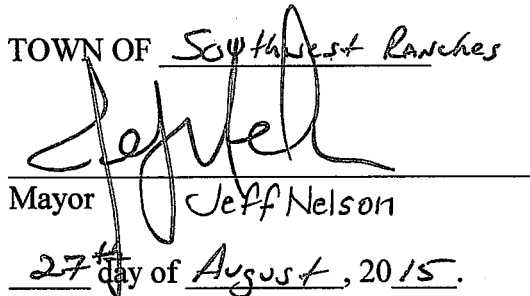 TOWN OF Southwest Ranches
Mayor Jeff Nelson
27th day of August, 2015.